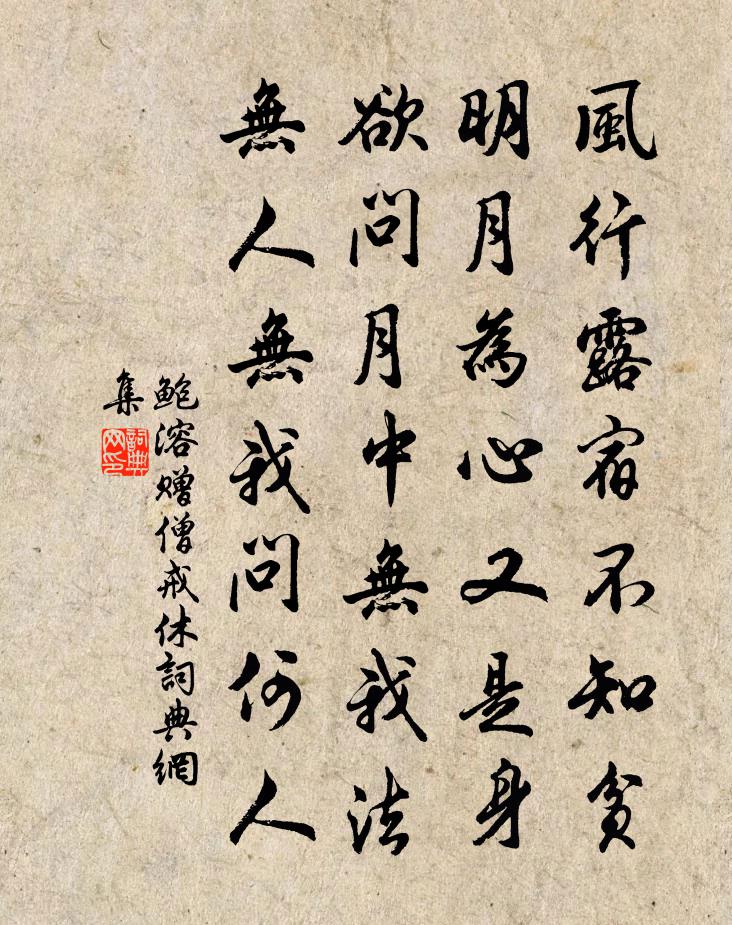 風行露宿不知貧
明月為心又是身
欲問月中無我法
無人無我問何人
鮑溶贈僧戒休詞典網
集
詞典
网印